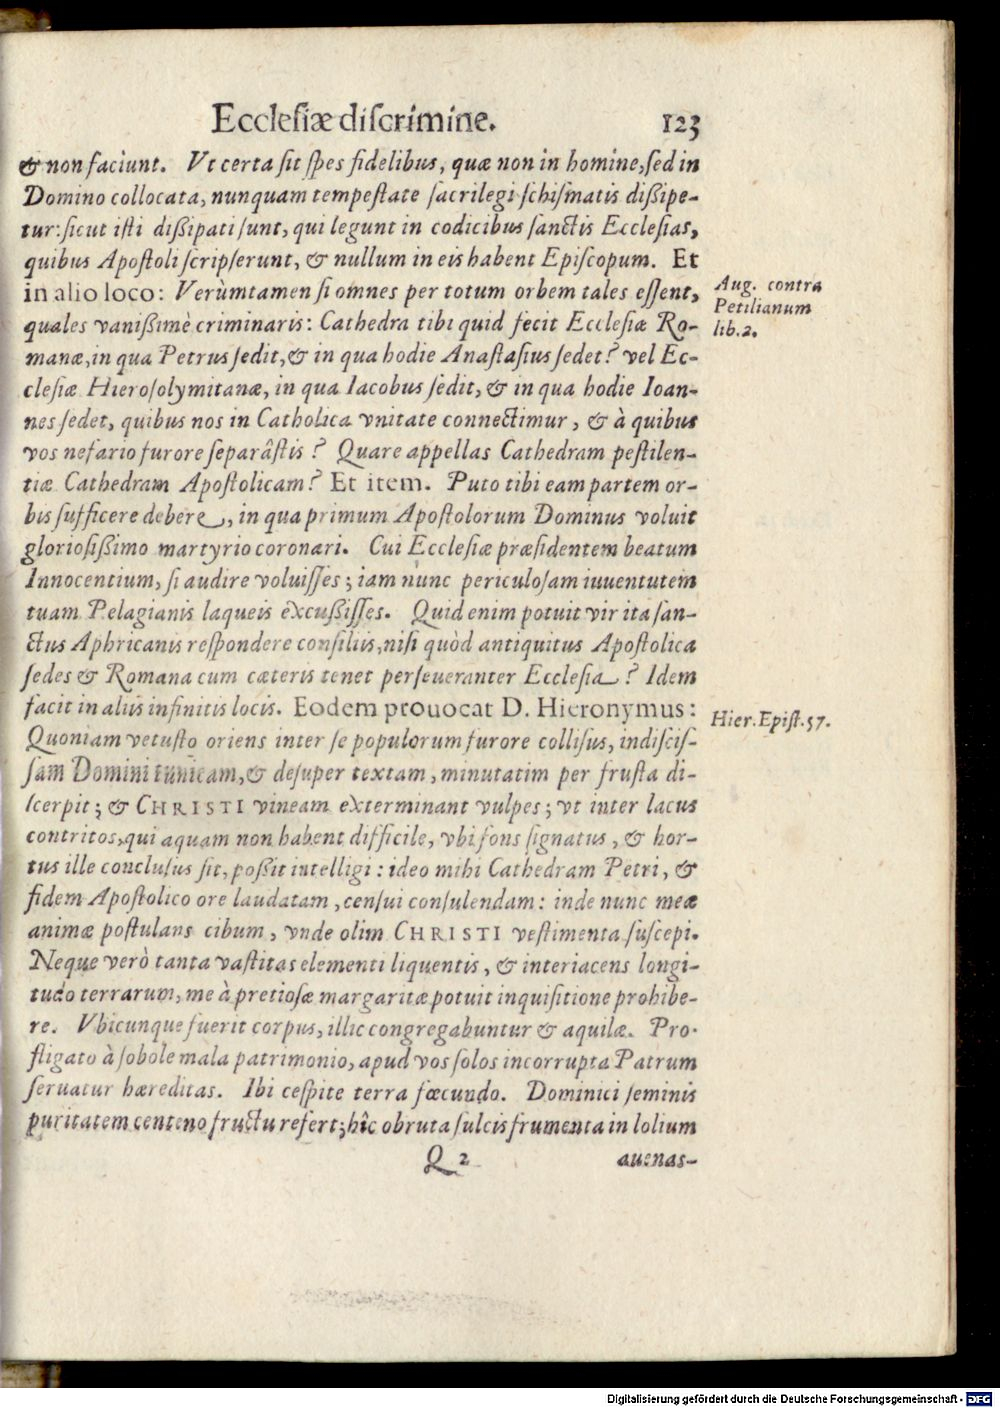 Ecclesiæ discrimine. 123
& non faciunt. Vt certa sit spes fidelibus, quæ non in homine, sed in
Domino collocata, nunquam tempestate sacrilegi schismatis dißipe-
tur: sicut isti dißipati sunt, qui legunt in codicibus sanctis Ecclesias,
quibus Apostoli scripserunt, & nullum in eis habent Episcopum. Et
in alio loco: Verùmtamen si omnes per totum orbem tales essent,
Aug. contra
Petilianum
lib. 2.
quales vanißimè criminaris: Cathedra tibi quid fecit Ecclesiæ Ro-
manæ, in qua Petrus sedit, & in qua hodie Anastasius sedet? vel Ec-
clesiæ Hierosolymitanæ, in qua Iacobus sedit, & in qua hodie Ioan-
nes sedet, quibus nos in Catholica vnitate connectimur, & à quibus
vos nefario furore separâstis? Quare appellas Cathedram pestilen-
tiæ Cathedram Apostolicam? Et item. Puto tibi eam partem or-
bis sufficere debere, in qua primum Apostolorum Dominus voluit
gloriosißimo martyrio coronari. Cui Ecclesiæ præsidentem beatum
Innocentium, si audire voluisses; iam nunc periculosam iuuentutem
tuam Pelagianis laqueis excußisses. Quid enim potuit vir ita san-
ctus Aphricanis respondere consiliis, nisi quòd antiquitus Apostolica
sedes & Romana cum cæteris tenet perseueranter Ecclesia? Idem
facit in aliis infinitis locis. Eodem prouocat D. Hieronymus:
Hier. Epist. 57.
Quoniam vetusto oriens inter se populorum furore collisus, indiscis-
sam Domini tunicam, & desuper textam, minutatim per frusta di-
scerpit; & CHRISTI vineam exterminant vulpes; vt inter lacus
contritos, qui aquam non habent difficile, vbi fons signatus, & hor-
tus ille conclusus sit, poßit intelligi: ideo mihi Cathedram Petri, &
fidem Apostolico ore laudatam, censui consulendam: inde nunc meæ
animæ postulans cibum, vnde olim CHRISTI vestimenta suscepi.
Neque verò tanta vastitas elementi liquentis, & interiacens longi-
tudo terrarum, me à pretiosæ margaritæ potuit inquisitione prohibe-
re. Vbicunque fuerit corpus, illic congregabuntur & aquilæ. Pro-
fligato à sobole mala patrimonio, apud vos solos incorrupta Patrum
seruatur hæreditas. Ibi cespite terra fœcundo. Dominici seminis
puritatem centeno fructu refert; hîc obruta sulcis frumenta in lolium
Q 2 auenas-
Digitalisierung gefördert durch die Deutsche Forschungsgemeinschaft - DFG